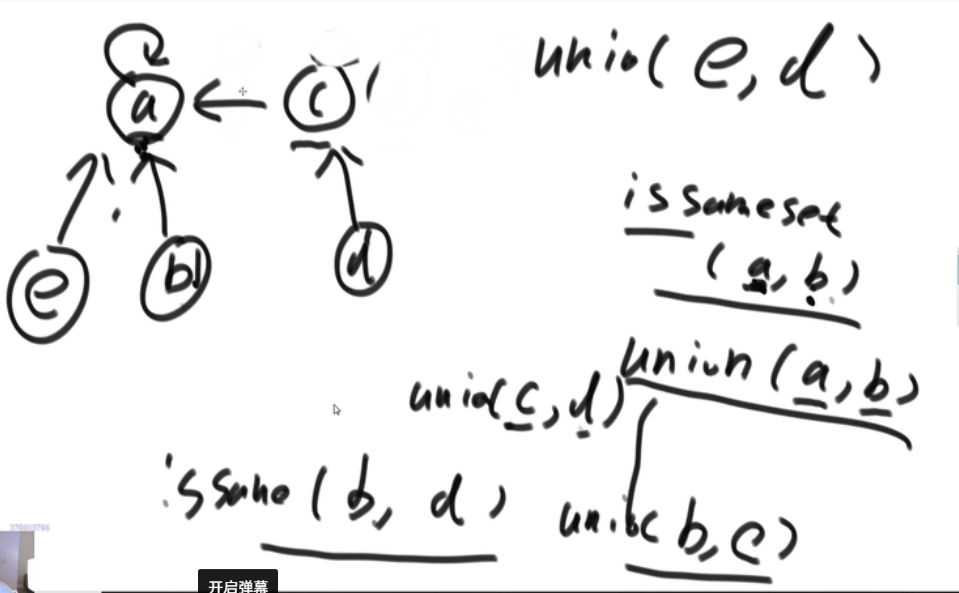 a
c
e
b
d
unio( e, d )
issameset
( a, b )
union ( a, b )
unio( c, d )
issame ( b, d )
unio( b, e )
开启弹幕